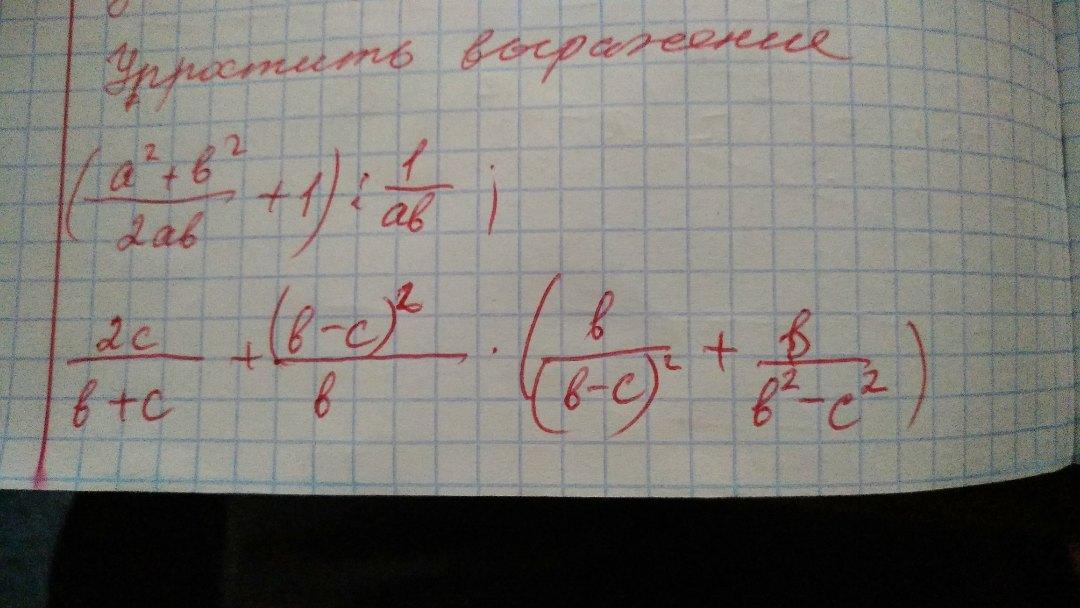 Упростить выражение
(a²+b²/2ab + 1) : 1/ab ;
2c/b+c + (b-c)²/b · (b/(b-c)² + b/b²-c²)